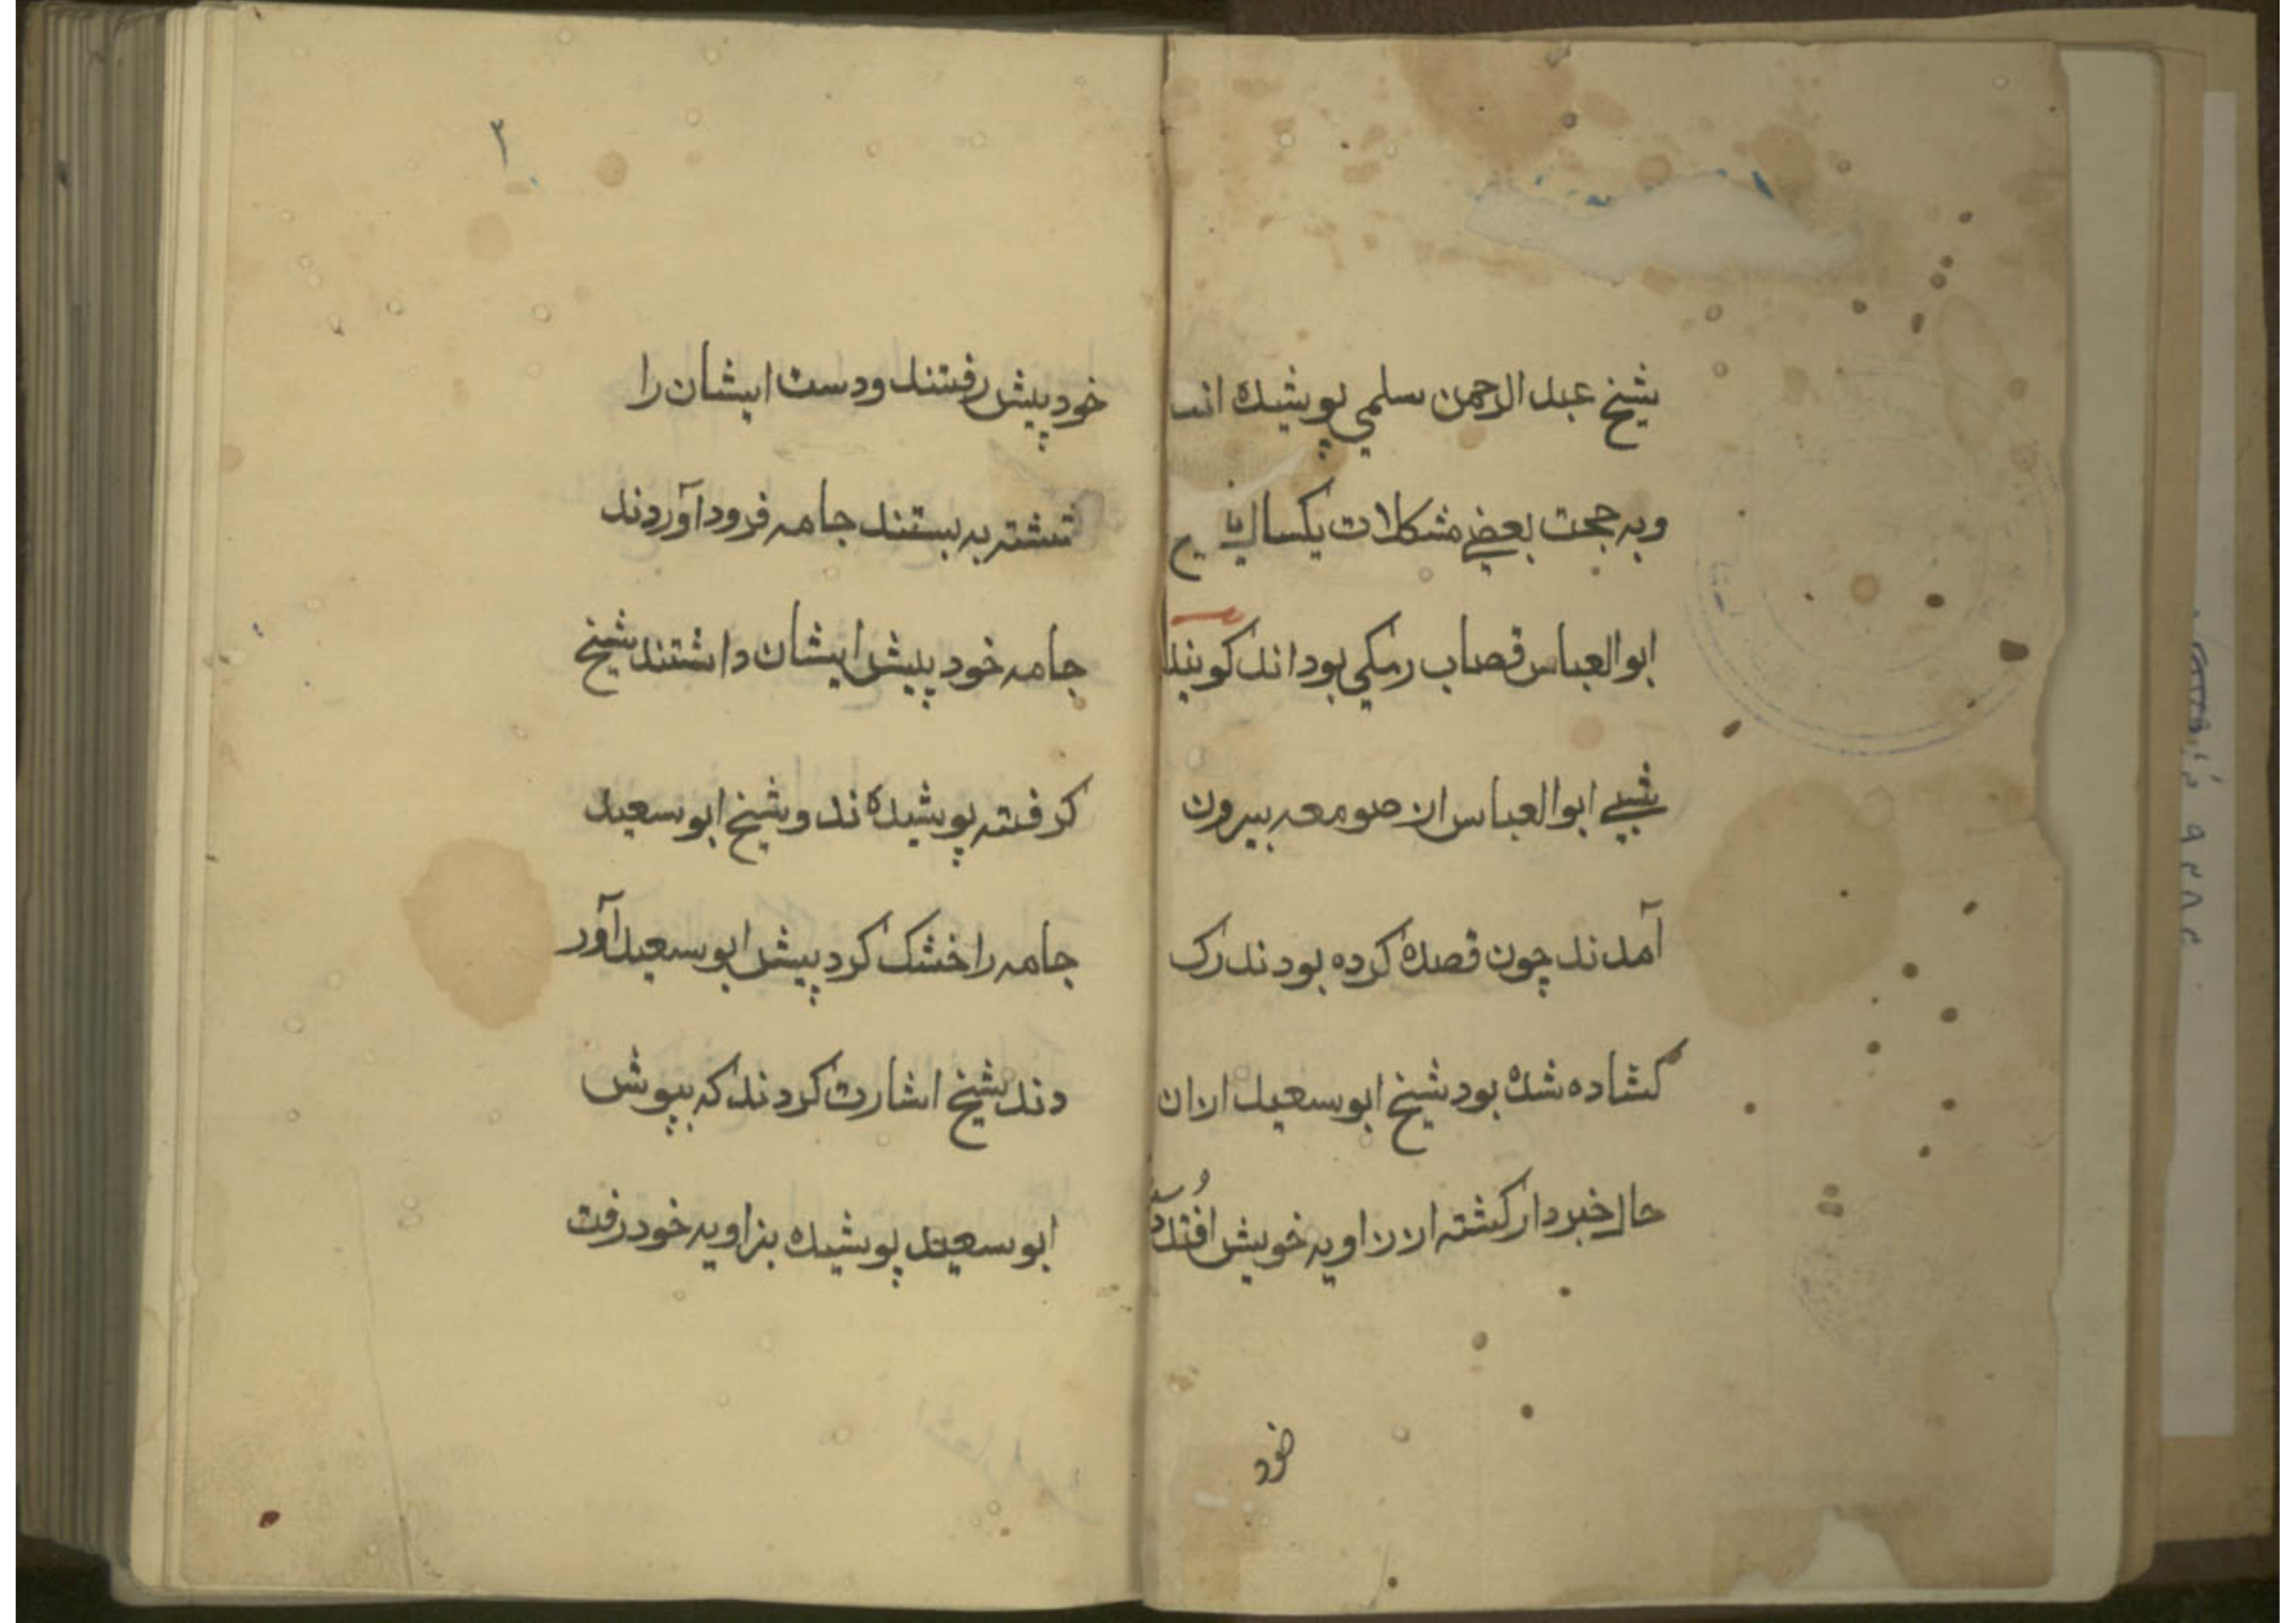 شیخ عبد الرحمن سلمی پوشیده اند
وبه جحت بعضی مشکلات یکسال با
ابوالعباس قصاب رمکی بوداند کویند
شبی ابوالعباس از صومعه بیرون
آمدند چون قصده کرده بودند رک
کشاده شده بود شیخ ابوسعید ازان
حال خبردار کشته از زاویه خویش
خود
۲
خود پیش رفتند ودست ایشان را
شتشته به بستند جامه فرودآوردند
جامه خود پیش ایشان داشتند شیخ
کرفته پوشیده ند وشیخ ابوسعید
جامه را خشک کرد پیش ابوسعید آور
دند شیخ اشارت کردند که بپوش
ابوسعید پوشیده بزاویه خود رفت